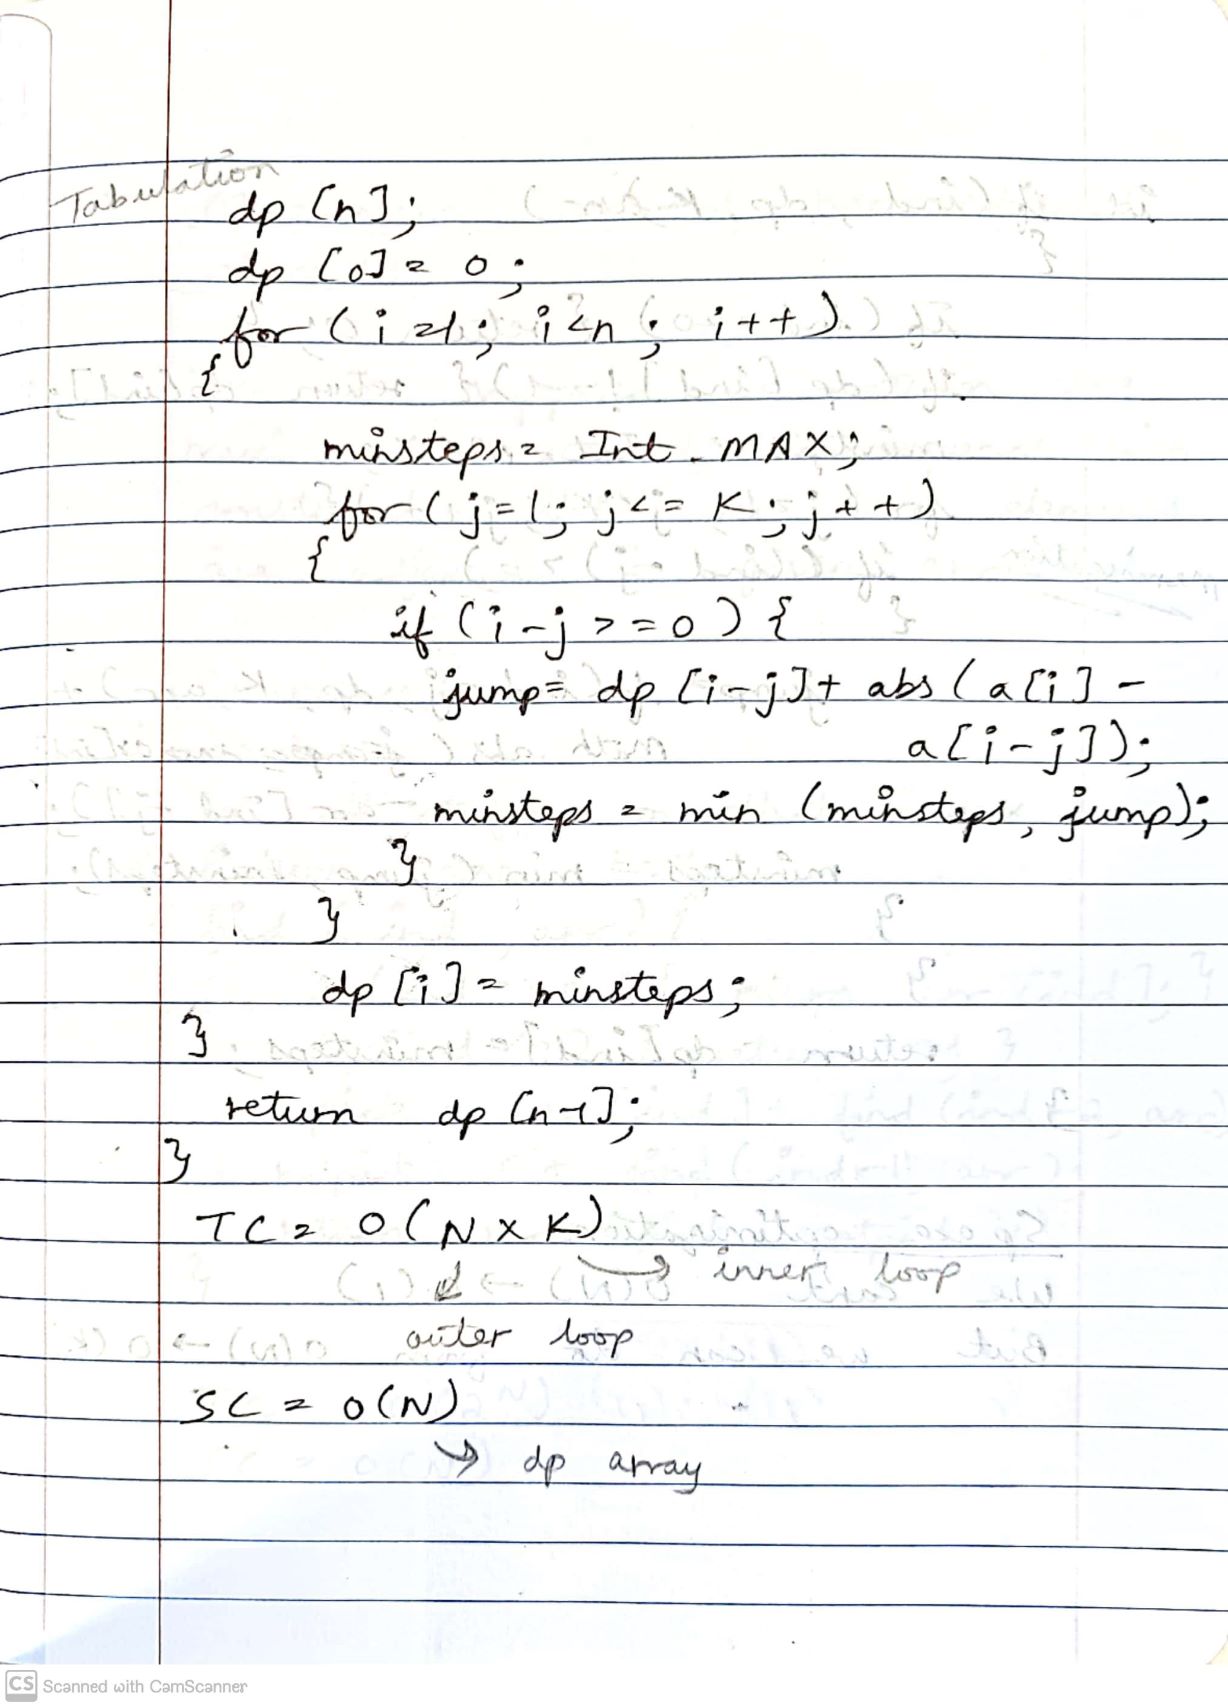 Tabulation
dp [n];
dp [0] = 0;
for (i=1; i<n; i++)
{
minsteps = Int_MAX;
for (j=1; j<=K; j++)
{
if (i-j >=0) {
jump= dp [i-j]+ abs (a[i] -
a[i-j]);
minsteps = min (minsteps, jump);
}
}
dp [i] = minsteps;
}
return dp [n-1];
}
TC = O(N x K)
inner loop
outer loop
SC = O(N)
→ dp array
CS Scanned with CamScanner